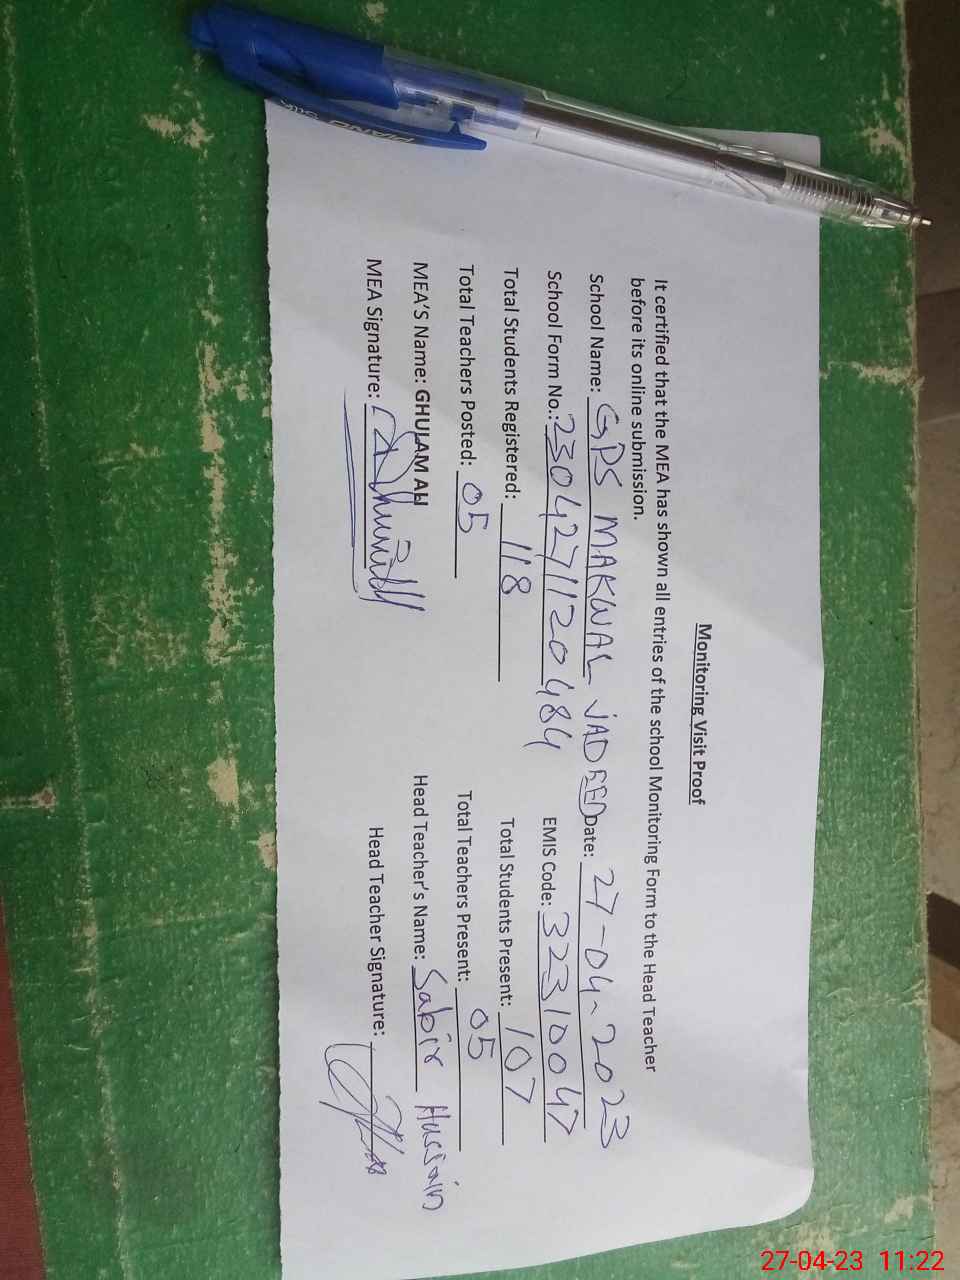 Monitoring Visit Proof
It certified that the MEA has shown all entries of the school Monitoring Form to the Head Teacher
before its online submission.
School Name: GPS MAKWAL JADEED Date: 27-04-2023
School Form No.: 2304271120484 EMIS Code: 32310047
Total Students Registered: 118 Total Students Present: 107
Total Teachers Posted: 05 Total Teachers Present: 05
MEA'S Name: GHULAM ALI Head Teacher's Name: Sabir Hussain
MEA Signature: Head Teacher Signature:
PIANO
27-04-23 11:22